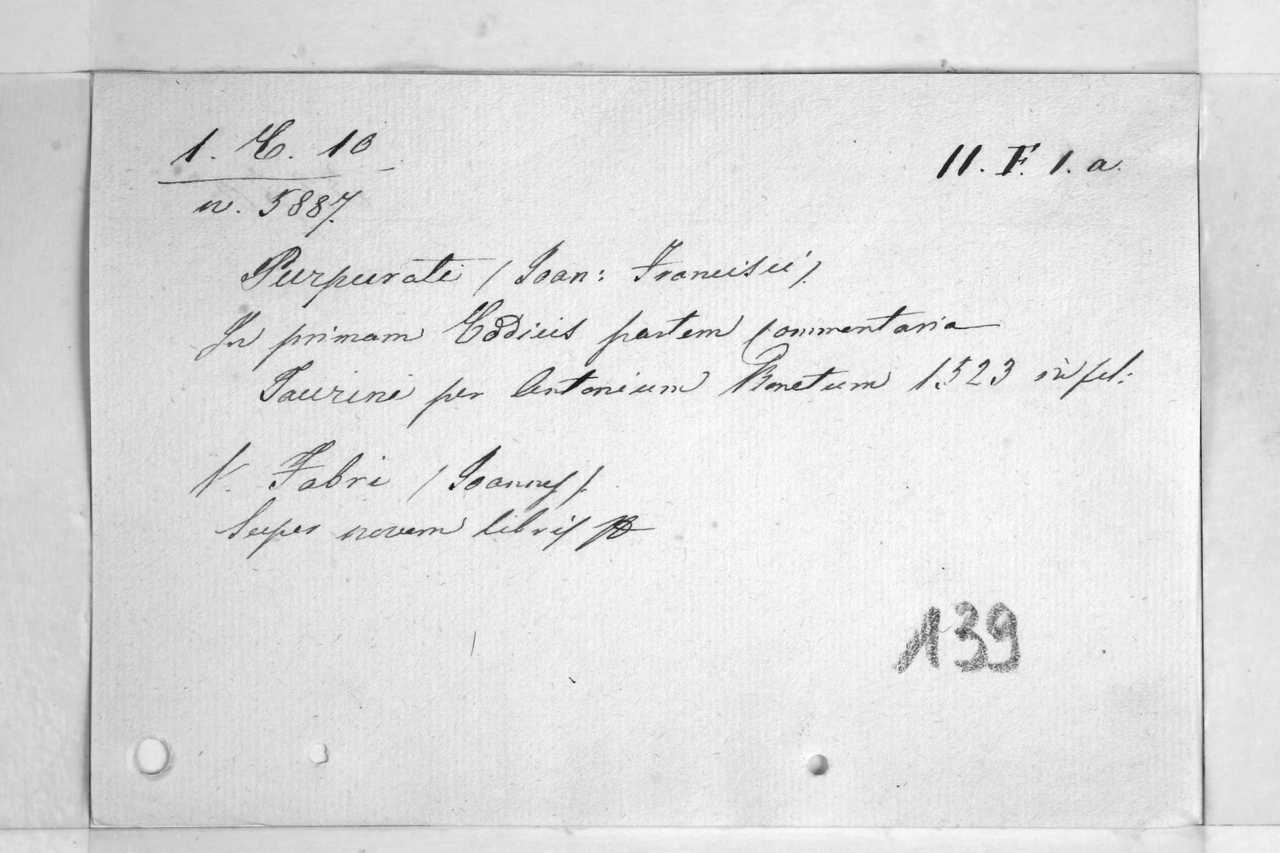 1. C. 10
11. F. 1. a.
n. 5887.
Purpurati (Joan: Francisci).
In primam Codicis partem commentaria
Taurini per Antonium Ranotum 1523 in fol:
V. Fabri (Joannes).
Super novem libris
139